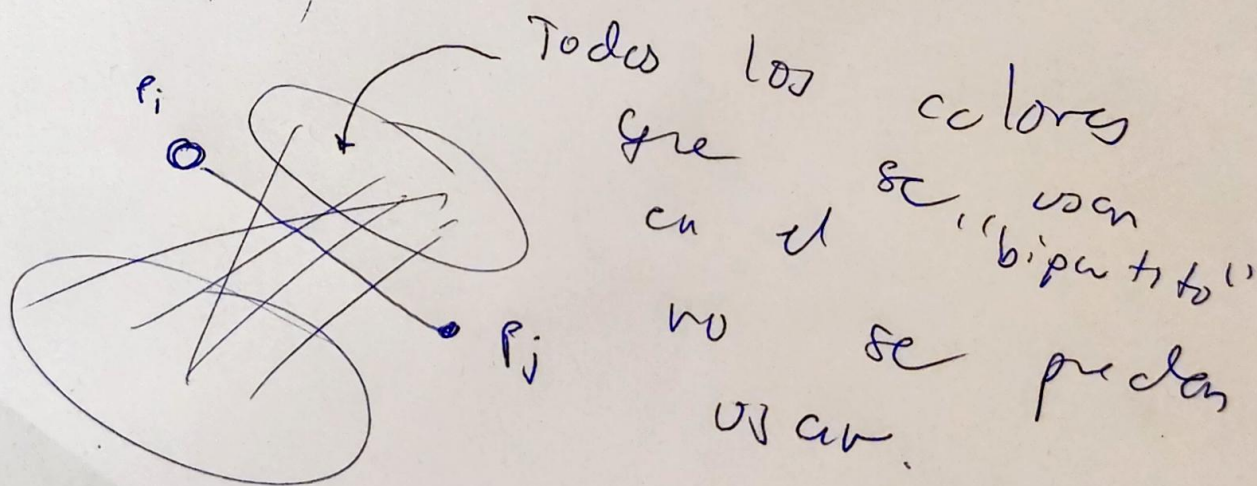 Todos los colores
que se usan
en el "bipartito"
no se pueden
usar.
Pi
Pj